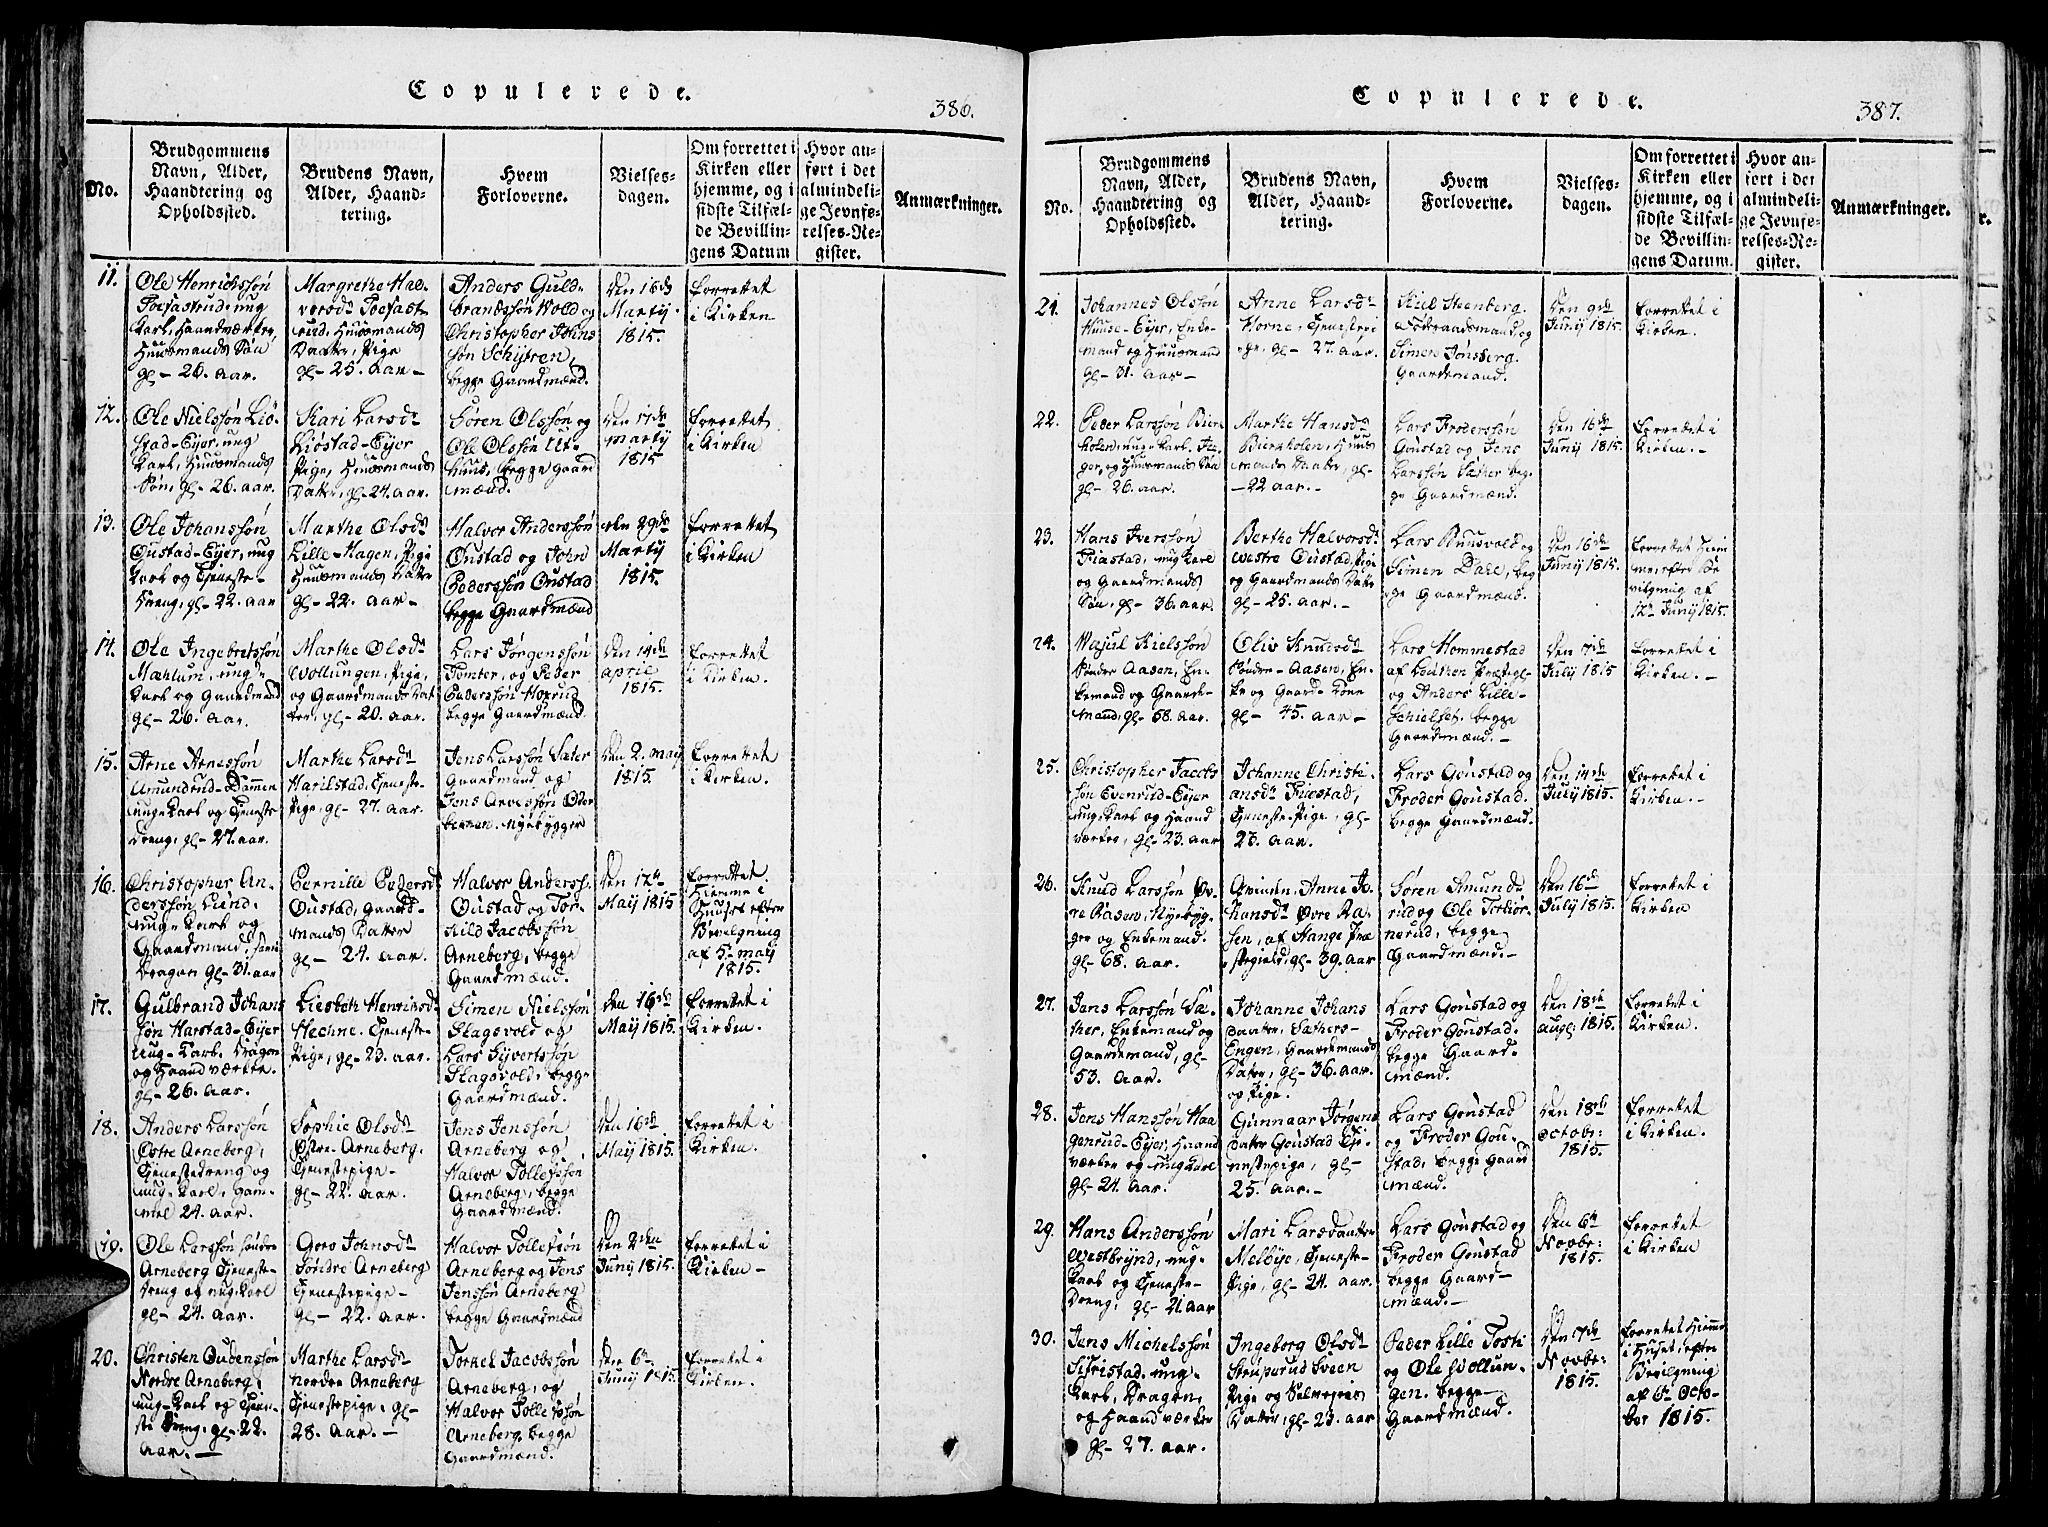 Copulerede.
386.
No.
Brudgommens
Navn, Alder,
Haandtering og
Opholdssted.
Brudens Navn,
Alder, Haand-
tering.
Hvem
Forloverne.
Vielses-
dagen.
Om forrettet i
Kirken eller
hjemme, og i
sidste Tilfæl-
de Bevillin-
gens Datum
Hvor an-
ført i det
almindeli-
ge Jevnfø-
relses-Re-
gister.
Anmærkninger.
11.
Ole Henrichssøn
ung
Karl, Haandværker,
Huusmands Søn
gl- 26. Aar.
Margrethe Hal-
vorsdr
Huusmands
Datter, Pige
gl- 25. Aar-
Anders Guld-
brandssøn Wold og
Christopher Johns
søn Schytren,
begge Gaardmænd.
Den 16de
Marty
1815.
Forrettet
i Kirken
12.
Ole Nielssøn Liø-
stad-Eyer, ung
Karl, Huusmands
Søn, gl- 26. aar.
Kari Larsdr
Liøstad-Eyer
Pige, Huusmands
Datter, gl- 24. aar.
Søren Olssøn og
Ole Olssøn Ut-
huus, begge Gaard
mænd.
Den 17de
Marty
1815
Forrettet
i Kirken
13.
Ole Johanssøn
Oustad-Eyer, ung
Karl og Tjeneste-
Dreng, gl- 22. Aar
Marthe Olsdr
Lille-Hagen, Pige
Huusmands Datter
gl- 22. Aar-
Halvor Anderssøn
Oustad og John
Pederssøn Oustad
begge Gaardmænd
Den 29de
Marty
1815.
Forrettet
i Kirken
14.
Ole Ingebretssøn
Mahlum, ung-
Karl og Gaardmand
gl- 26. Aar.
Marthe Olsdr
Wollungen, Pige,
og Gaardmands Dat
ter, gl- 20. Aar.
Lars Jørgenssøn
Tomter, og Peder
Pederssøn Hoxrud
begge Gaardmænd.
Den 14de
april
1815.
Forrettet
i Kirken.
15.
Arne Arnessøn
Amundrud-Dammen
unge Karl og Tjeneste
Dreng, gl- 27. aar.
Marthe Larsdr
Harilstad, Tjeneste-
Pige, gl- 27. Aar.
Jens Larssøn Sæter
Gaardmand og
Jens Arvessøn
Nyebygger
Den 2. may
1815.
Forrettet
i Kirken.
16.
Christopher An-
derssøn Lund-
ung Karl og
Gaardmand, samt
Dragon gl- 31. aar
Pernille Pedersdr
Oustad, Gaard-
mands Datter
gl- 24. Aar.
Halvor Anderss.
Oustad og Tor-
kild Jacobssøn
Arneberg, begge
Gaardmænd.
Den 12te
May 1815
forrettet
Hiemme i
Huuset efter
Bevilgning
af 5- may
1815.
17.
Gulbrand Johans
søn Harstad-Eyer
Ung-Karl, Dragon
og Haandværker.
gl- 26. Aar.
Liesbeth Henriksdr
Hechne. Tjeneste-
Pige, gl- 23. Aar.
Simen Nielssøn
Skagsvold og
Lars Syvertssøn
Skagsvold, begge
Gaardmænd.
Den 16de
May 1815.
Forrettet i
Kirken.
18.
Anders Larssøn
Østre Arneberg,
Tjenestedreng og
ung-Karl, gam-
mel 24. aar.
Sophie Olsdr
Østre-Arneberg.
Tjenestepige-
gl- 22. Aar.
Jens Jenssøn
Arneberg og
Halvor Tollefssøn
Arneberg, begge
Gaardmænd.
Den 16de
May 1815.
Forrettet i
Kirken.
19.
Ole Larssøn søndre
Arneberg Tjeneste-
Dreng og ung-Karl
gl- 24. Aar.
Goro Johnsdr
Søndre Arneberg
Tjenestepige-
gl- 22. Aar.
Halvor Tollefsøn
Arneberg og Jens
Jenssøn Arneberg
begge Gaardmænd
Den 2den
Juny 1815.
Forrettet i
Kirken-
20.
Christen Oudenssøn
Nordre Arneberg,
ung-Karl og Tjene-
ste Dreng, gl- 22.
Aar.-
Marthe Larsdr
nordre Arneberg
Tjenestepige, gl-
28. Aar.-
Torkel Jacobssøn
Arneberg, og
Halvor Tollefssøn
Arneberg, begge
Gaardmænd.
Den 6te
Juny 1815.
Forrettet i
Kirken.
Copulerede.
387.
No.
Brudgommens
Navn, Alder,
Haandtering og
Opholdssted.
Brudens Navn,
Alder, Haand-
tering.
Hvem
Forloverne.
Vielses-
dagen.
Om forrettet i
Kirken eller
hjemme, og i
sidste Tilfæl-
de Bevillin-
gens Datum.
Hvor an-
ført i det
almindeli-
ge Jevnfø-
relses-Re-
gister.
Anmærkninger.
21.
Johannes Olssøn
Huuse-Eyer, Enke-
mand og Huusmand
gl- 31. Aar-
Anne Larsdr
Horne, Tjenestepi-
ge, gl- 27. Aar.
Kiel Stenberg.
Føderaadsmand og
Simen Jønsberg.
Gaardmand.
Den 9de
Juny 1815.
Forrettet i
Kirken.
22.
Peder Larssøn Bier-
kolen, unge Karl,
og Huusmands Søn
gl- 26. Aar.
Marthe Hansdr
Bierkolen, Huus
mands Datter, gl-
-22 aar.-
Lars Froderssøn
Goustad og Jens
Larssøn Sæther beg-
ge Gaardmænd.
Den 16de
Juny 1815.
Forrettet i
Kirken.-
23.
Hans Iverssøn
Fiastad, ung karl
og Gaardmands
Søn, gl- 36. aar.
Berthe Halvorsdr
westre Oustad, Pige
og Gaardmands Datter
gl- 25. Aar.-
Lars Buusvold og
Simen Dahl, beg-
ge Gaardmænd.
Den 16de
Juny 1815.
forrettet Hiem
me, efter Be
vilgning af
12te Juny 1815.
24.
Kielssøn
Søndre Aasen, En-
kemand og Gaard-
mand, gl- 58. Aar.
Oliv Knudsdr
Søndre-Aasen, En-
ke og Gaard-Kone
gl- 45. Aar-
Lars Hommestad
af Leuthen Præstegl-
og Anders Lille-
Schielset, begge
Gaardmænd.-
Den 7de
July 1815
Forrettet i
Kirken.-
25.
Christopher Jacobs
søn Evenrud-Eyer
ung Karl og Haand
værker, gl- 23. aar
Johanne Christi-
ansdr Fiestad,
Tjeneste-Pige, gl-
23. Aar.
Lars Goustad og
Froder Goustad.
begge Gaardmænd.
Den 14de
July 1815.
Forrettet i
Kirken.-
26.
Knud Larssøn Øv-
re Rasen, Nyebyg-
ger og Enkemand.
gl- 68. Aar.
Qvinden, Anne Jo-
hansdr Øvre Ra-
sen, af Stange Præ
stegield, gl- 39. Aar
Søren Amund-
rud og Ole Torkiør-
nerud, begge
Gaardmænd.-
Den 16de
July 1815.
Forrettet i
Kirken
27.
Jens Larssøn Sæ-
ther, Enkemand og
Gaardmand, gl-
53. Aar.
Johanne Johans
datter, Sæthers-
Engen, Gaardmands
Datter, gl- 36. Aar.
og Pige.
Lars Goustad og
Froder Goustad.
begge Gaard-
mænd.
Den 18de
augl. 1815.
Forrettet i
Kirken.
28.
Jens Hanssøn Haa
genrud-Eyer, Haand
værker og ung Karl
gl- 24. Aar.
Gunnaar Jørgens
datter Goustad Tje-
nestepige, gl-
25. Aar.-
Lars Goustad
og Froder Gou-
stad, begge Gaard
mænd.
Den 18de
Octobr:
1815.
Forrettet
i Kirken.
29.
Hans Anderssøn
Westbrynd, ung-
Karl og Tjeneste-
Dreng, gl- 21. Aar
Mari Larsdatter
Melbye, Tjeneste-
Pige, gl- 24. Aar.
Lars Goustad og
Froder Goustad
begge Gaard-
mænd.-
Den 6te
Novbr:
1815.
Forrettet
i Kirken
30.
Jens Michelssøn
Sifristad, ung-
Karl, Dragon,
og Haandværker
gl- 27. Aar.
Ingeborg Olsdr
Sveen
Pige og Selvejer-
Datter, gl- 23. Aar
Peder Lille Tosti
og Ole Wollun-
gen, begge-
Gaardmænd.
Den 7de
Novbr:
1815.
forrettet Hiemme
i Huset, efter
Bevilgning
af 6te Octo-
ber 1815.